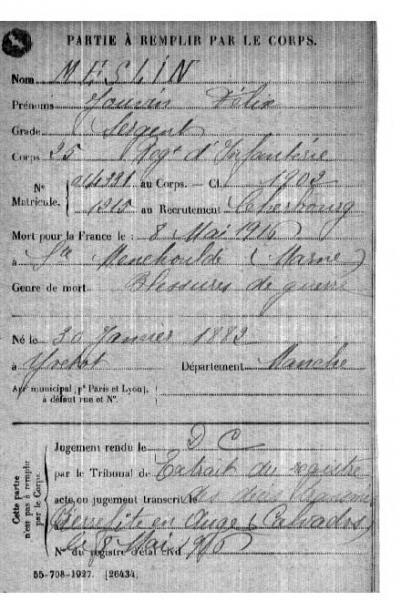 PARTIE À REMPLIR PAR LE CORPS.
Nom MESLIN
Prénoms Félix
Grade Sergent
Corps 25 Reg.t d'Infanterie
N° Matricule. 014391 au Corps. — Cl. 1902
1215 au Recrutement Cherbourg
Mort pour la France le : 8 Mai 1916
à Ste Menehoulde (Marne)
Genre de mort Blessures de guerre
Né le 30 Janvier 1882
à Yvetot Département Manche
Arr municipal (pr Paris et Lyon),
à défaut rue et N°.
Cette partie n'est pas à remplir par le Corps.
Jugement rendu le D C
par le Tribunal de Extrait du registre
acte ou jugement transcrit le des
Pierrefite en Auge (Calvados)
le 8 Mai 1916
N° du registre d'état civil
55-708-1927. [26434]